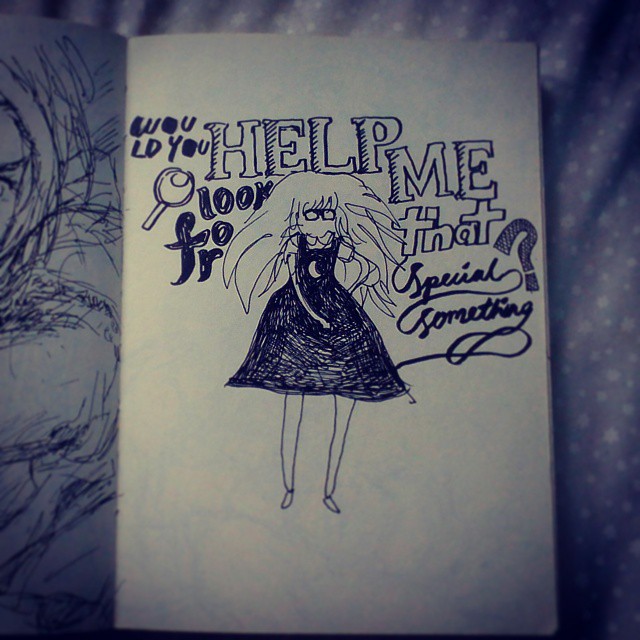 WOU
LD YOU
HELP
ME
look
fo
r
that
special
something
?